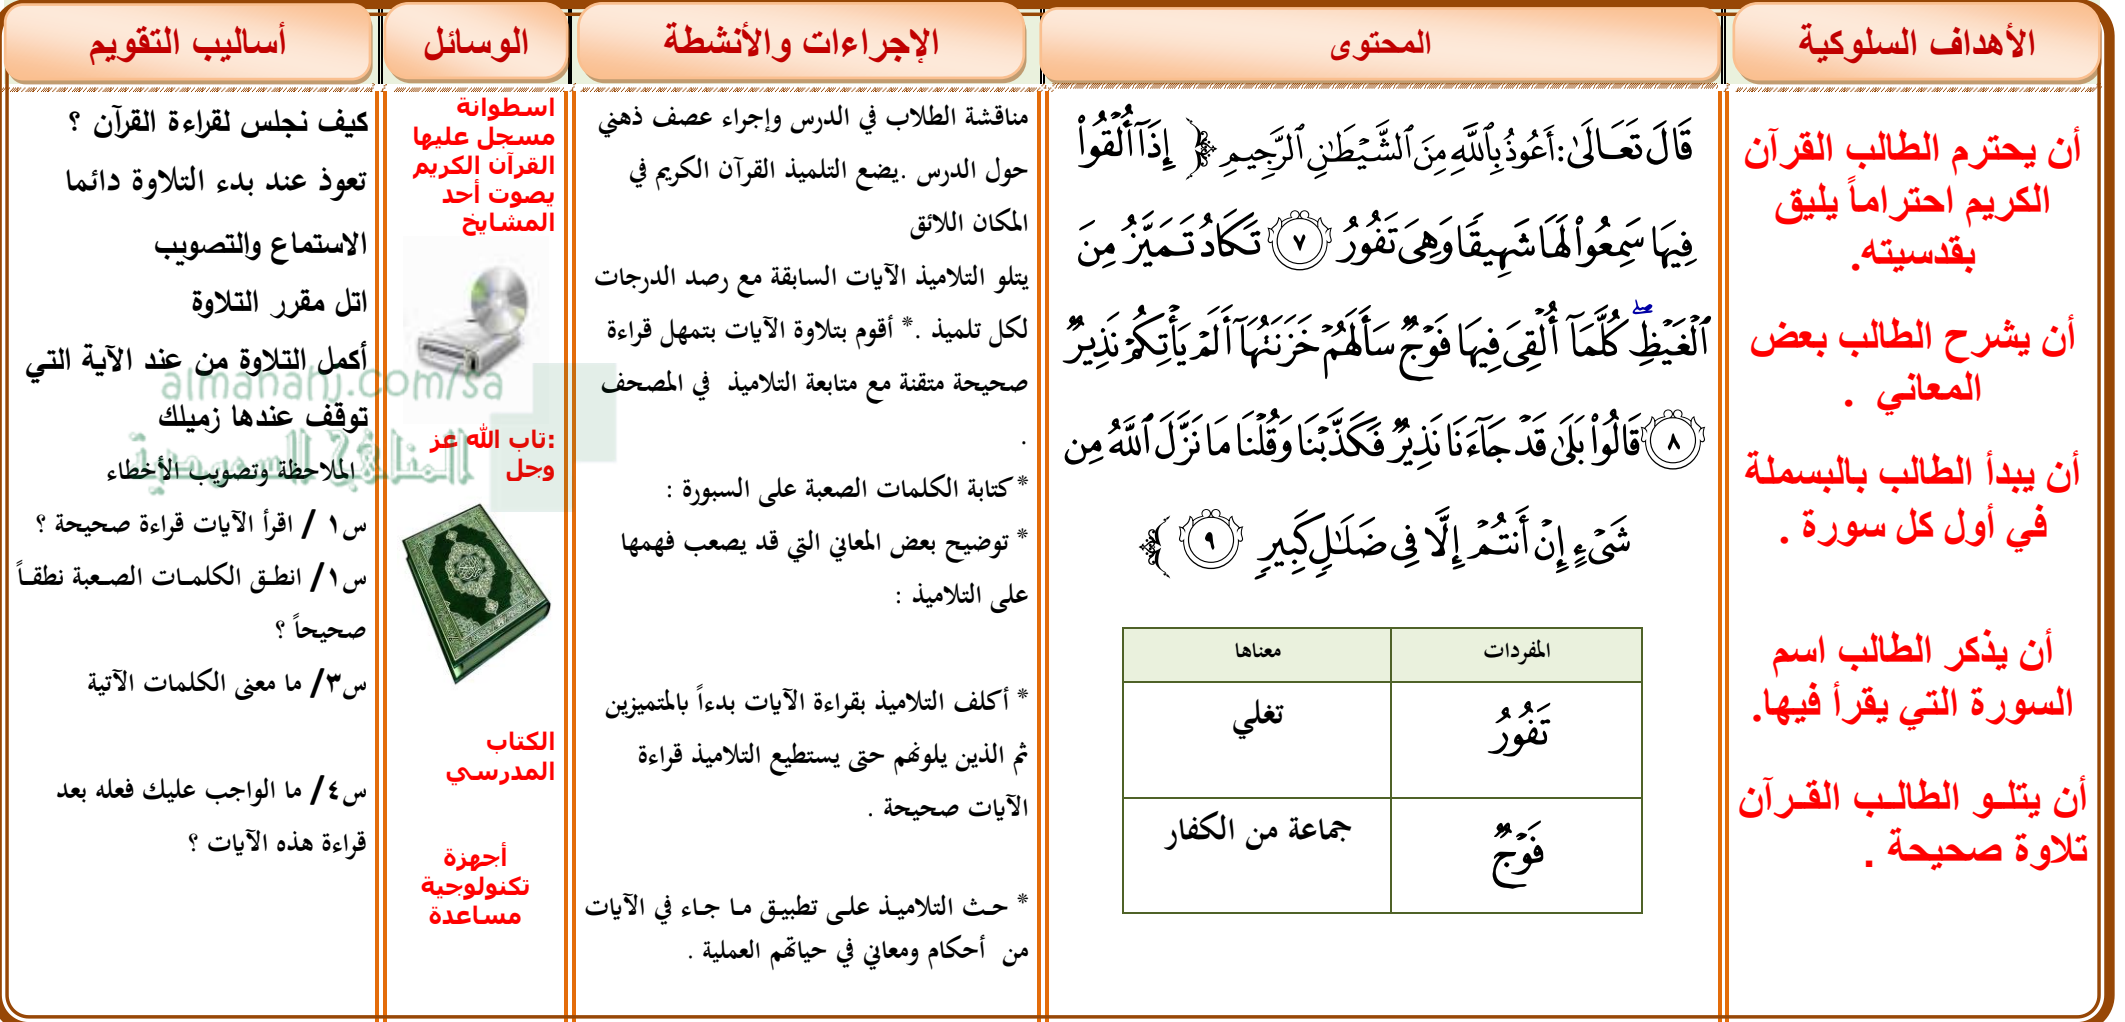 الأهداف السلوكية
أن يحترم الطالب القرآن
الكريم احتراماً يليق
بقدسيته.
أن يشرح الطالب بعض
المعاني .
أن يبدأ الطالب بالبسملة
في أول كل سورة .
أن يذكر الطالب اسم
السورة التي يقرأ فيها.
أن يتلو الطالب القرآن
تلاوة صحيحة .
المحتوى
قَالَ تَعَالَىٰ: أَعُوذُ بِٱللَّهِ مِنَ ٱلشَّيْطَٰنِ ٱلرَّجِيمِ ﴿ إِذَآ أُلْقُوا۟
فِيهَا سَمِعُوا۟ لَهَا شَهِيقًا وَهِىَ تَفُورُ ٧ تَكَادُ تَمَيَّزُ مِنَ
ٱلْغَيْظِ ۖ كُلَّمَآ أُلْقِىَ فِيهَا فَوْجٌ سَأَلَهُمْ خَزَنَتُهَآ أَلَمْ يَأْتِكُمْ نَذِيرٌ
٨ قَالُوا۟ بَلَىٰ قَدْ جَآءَنَا نَذِيرٌ فَكَذَّبْنَا وَقُلْنَا مَا نَزَّلَ ٱللَّهُ مِن
شَىْءٍ إِنْ أَنتُمْ إِلَّا فِى ضَلَٰلٍ كَبِيرٍ ٩ ﴾
المفردات معناها
تَفُورُ تغلي
فَوْجٌ جماعة من الكفار
الإجراءات والأنشطة
مناقشة الطلاب في الدرس وإجراء عصف ذهني
حول الدرس .يضع التلميذ القرآن الكريم في
المكان اللائق
يتلو التلاميذ الآيات السابقة مع رصد الدرجات
لكل تلميذ .* أقوم بتلاوة الآيات بتمهل قراءة
صحيحة متقنة مع متابعة التلاميذ في المصحف
.
*كتابة الكلمات الصعبة على السبورة :
* توضيح بعض المعاني التي قد يصعب فهمها
على التلاميذ :
* أكلف التلاميذ بقراءة الآيات بدءاً بالمتميزين
ثم الذين يلونهم حتى يستطيع التلاميذ قراءة
الآيات صحيحة .
* حث التلاميذ على تطبيق ما جاء في الآيات
من أحكام ومعاني في حياتهم العملية .
الوسائل
اسطوانة
مسجل عليها
القرآن الكريم
بصوت أحد
المشايخ
:تاب الله عز
وجل
الكتاب
المدرسي
أجهزة
تكنولوجية
مساعدة
أساليب التقويم
كيف نجلس لقراءة القرآن ؟
تعوذ عند بدء التلاوة دائما
الاستماع والتصويب
اتل مقرر التلاوة
أكمل التلاوة من عند الآية التي
توقف عندها زميلك
الملاحظة وتصويب الأخطاء
س١ / اقرأ الآيات قراءة صحيحة ؟
س١/ انطق الكلمات الصعبة نطقاً
صحيحاً ؟
س٣/ ما معنى الكلمات الآتية
س٤/ ما الواجب عليك فعله بعد
قراءة هذه الآيات ؟
almanahj.com/sa
المناهج السعودية